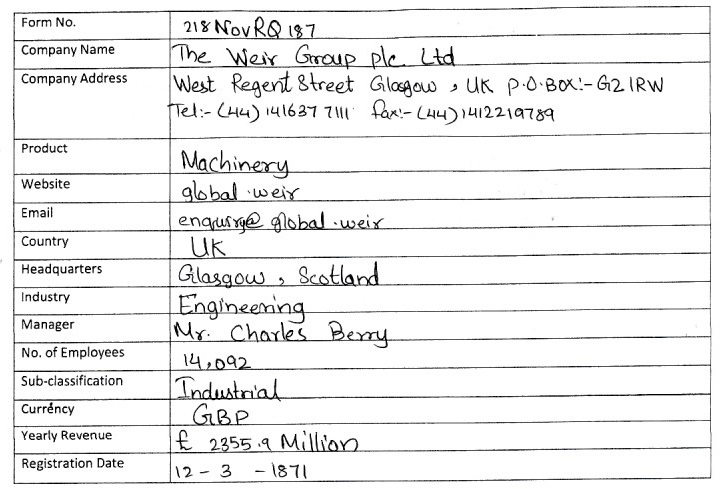 Form No. 218 Nov RQ 187
Company Name The Weir Group plc Ltd
Company Address West Regent Street Glasgow, UK P.O.BOX:- G2 1RW
Tel:- (44) 141637 7111 fax:- (44) 1412219789
Product Machinery
Website global.weir
Email enquiry@global.weir
Country UK
Headquarters Glasgow, Scotland
Industry Engineering
Manager Mr. Charles Berry
No. of Employees 14,092
Sub-classification Industrial
Currency GBP
Yearly Revenue £ 2355.9 Million
Registration Date 12 - 3 - 1871